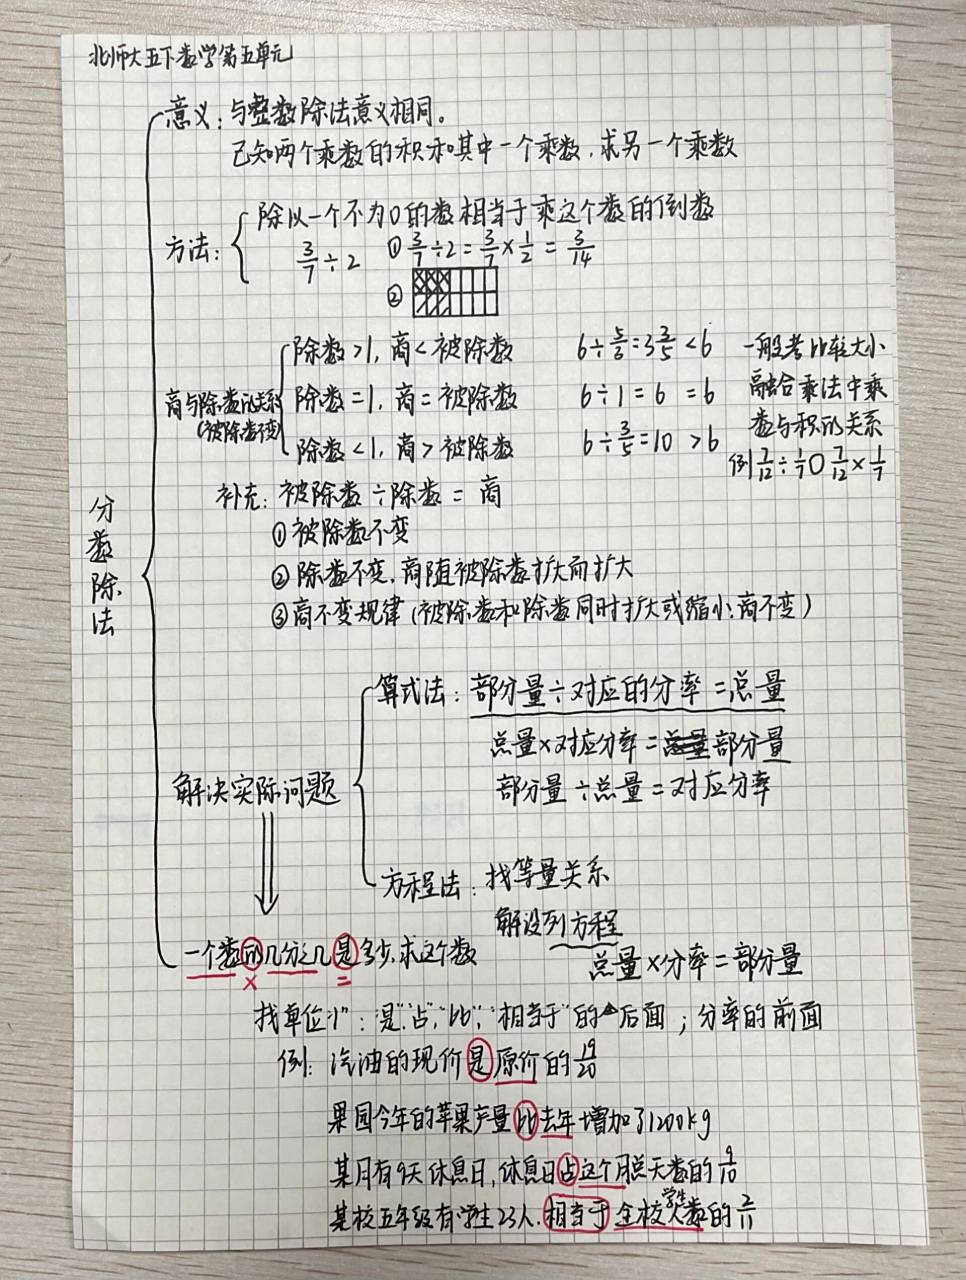 北师大五下数学第五单元
意义：与整数除法意义相同。
已知两个乘数的积和其中一个乘数，求另一个乘数
方法：
除以一个不为0的数相当于乘这个数的倒数
3/7÷2 ①3/7÷2=3/7×1/2=3/14
②
商与除数的关系
(被除数不变)
除数>1，商<被除数 6÷5/3=3 3/5<6
除数=1，商=被除数 6÷1=6 =6
除数<1，商>被除数 6÷3/5=10 >6
一般考比较大小
融合乘法中乘
数与积的关系
例7/12÷1/7○7/12×1/7
补充：被除数÷除数=商
①被除数不变
②除数不变，商随被除数扩大而扩大
③商不变规律(被除数和除数同时扩大或缩小，商不变)
分数除法
解决实际问题
算式法：部分量÷对应的分率=总量
总量×对应分率=部分量
部分量÷总量=对应分率
方程法：找等量关系
解设列方程
总量×分率=部分量
一个数的几分之几是多少，求这个数
× =
找单位"1"："是"、"占"、"比"、"相当于"的后面；分率的前面
例：汽油的现价是原价的19/20
果园今年的苹果产量比去年增加了1200kg
某月有9天休息日，休息日占这个月总天数的9/10
某校五年级有学生23人，相当于全校学生人数的2/11